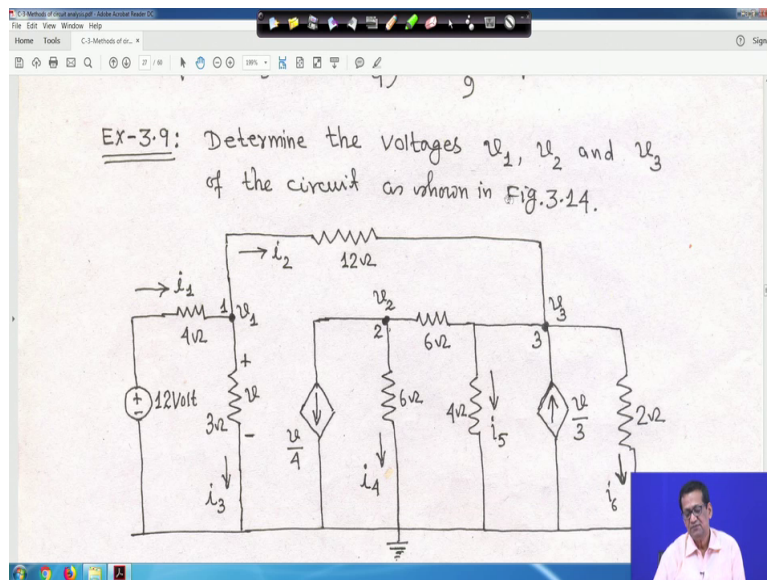 C-3-Methods of circuit analysis.pdf - Adobe Acrobat Reader DC
File Edit View Window Help
Home Tools C-3-Methods of cir... × Sign
27 / 60 199%
9
EX-3.9: Determine the voltages v1, v2 and v3
of the circuit as shown in Fig.3.14.
i2
12Ω
i1
1 v1
4Ω
v2
2
6Ω
v3
3
+
12Volt
+
-
3Ω
v
-
v/4
6Ω
4Ω
i5
v/3
2Ω
i3
i4
i6